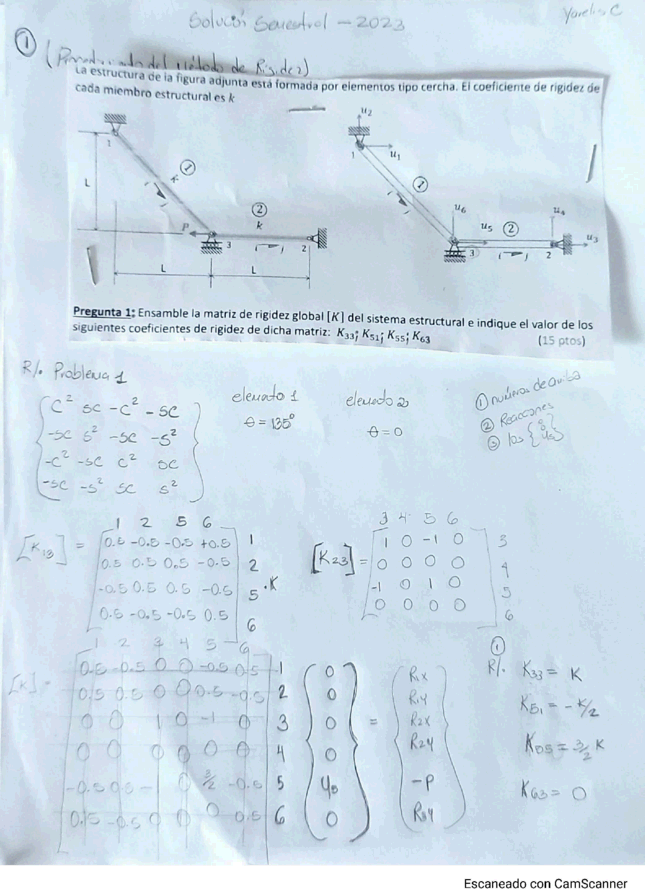 Solución Semestral - 2023
Yarelis C
① (
del Método de Rigidez)
La estructura de la figura adjunta está formada por elementos tipo cercha. El coeficiente de rigidez de
cada miembro estructural es k
1
L
①
k
②
k
P
3
2
L
L
u2
1
u1
①
u6
u5
②
u4
u3
3
2
Pregunta 1: Ensamble la matriz de rigidez global [K] del sistema estructural e indique el valor de los
siguientes coeficientes de rigidez de dicha matriz: K33; K51; K55; K63
(15 ptos)
R/. Problema 1
C² SC -C² -SC
-SC S² -SC -S²
-C² -SC C² SC
-SC -S² SC S²
elemento 1
θ = 135°
elemento 2
θ = 0
① números de arriba
② Reacciones
③ los
1 2 5 6
[K13] =
0.5 -0.5 -0.5 +0.5 1
0.5 0.5 0.5 -0.5 2
-0.5 0.5 0.5 -0.5 5 .K
0.5 -0.5 -0.5 0.5 6
3 4 5 6
[K23] =
1 0 -1 0 3
0 0 0 0 4
-1 0 1 0 5
0 0 0 0 6
1 2 3 4 5 6
[K] =
0.5 -0.5 0 0 -0.5 0.5 1 0 R1x
0.5 0.5 0 0 0.5 -0.5 2 0 R1y
0 0 1 0 -1 0 3 0 = R2x
0 0 0 0 0 0 4 0 R2y
-0.5 0.5 -1 0 3/2 -0.5 5 -P
0.5 -0.5 0 0 0 0.5 6 0
①
R/. K33 = K
K51 = -K/2
K55 = 3/2 K
K63 = 0
Escaneado con CamScanner